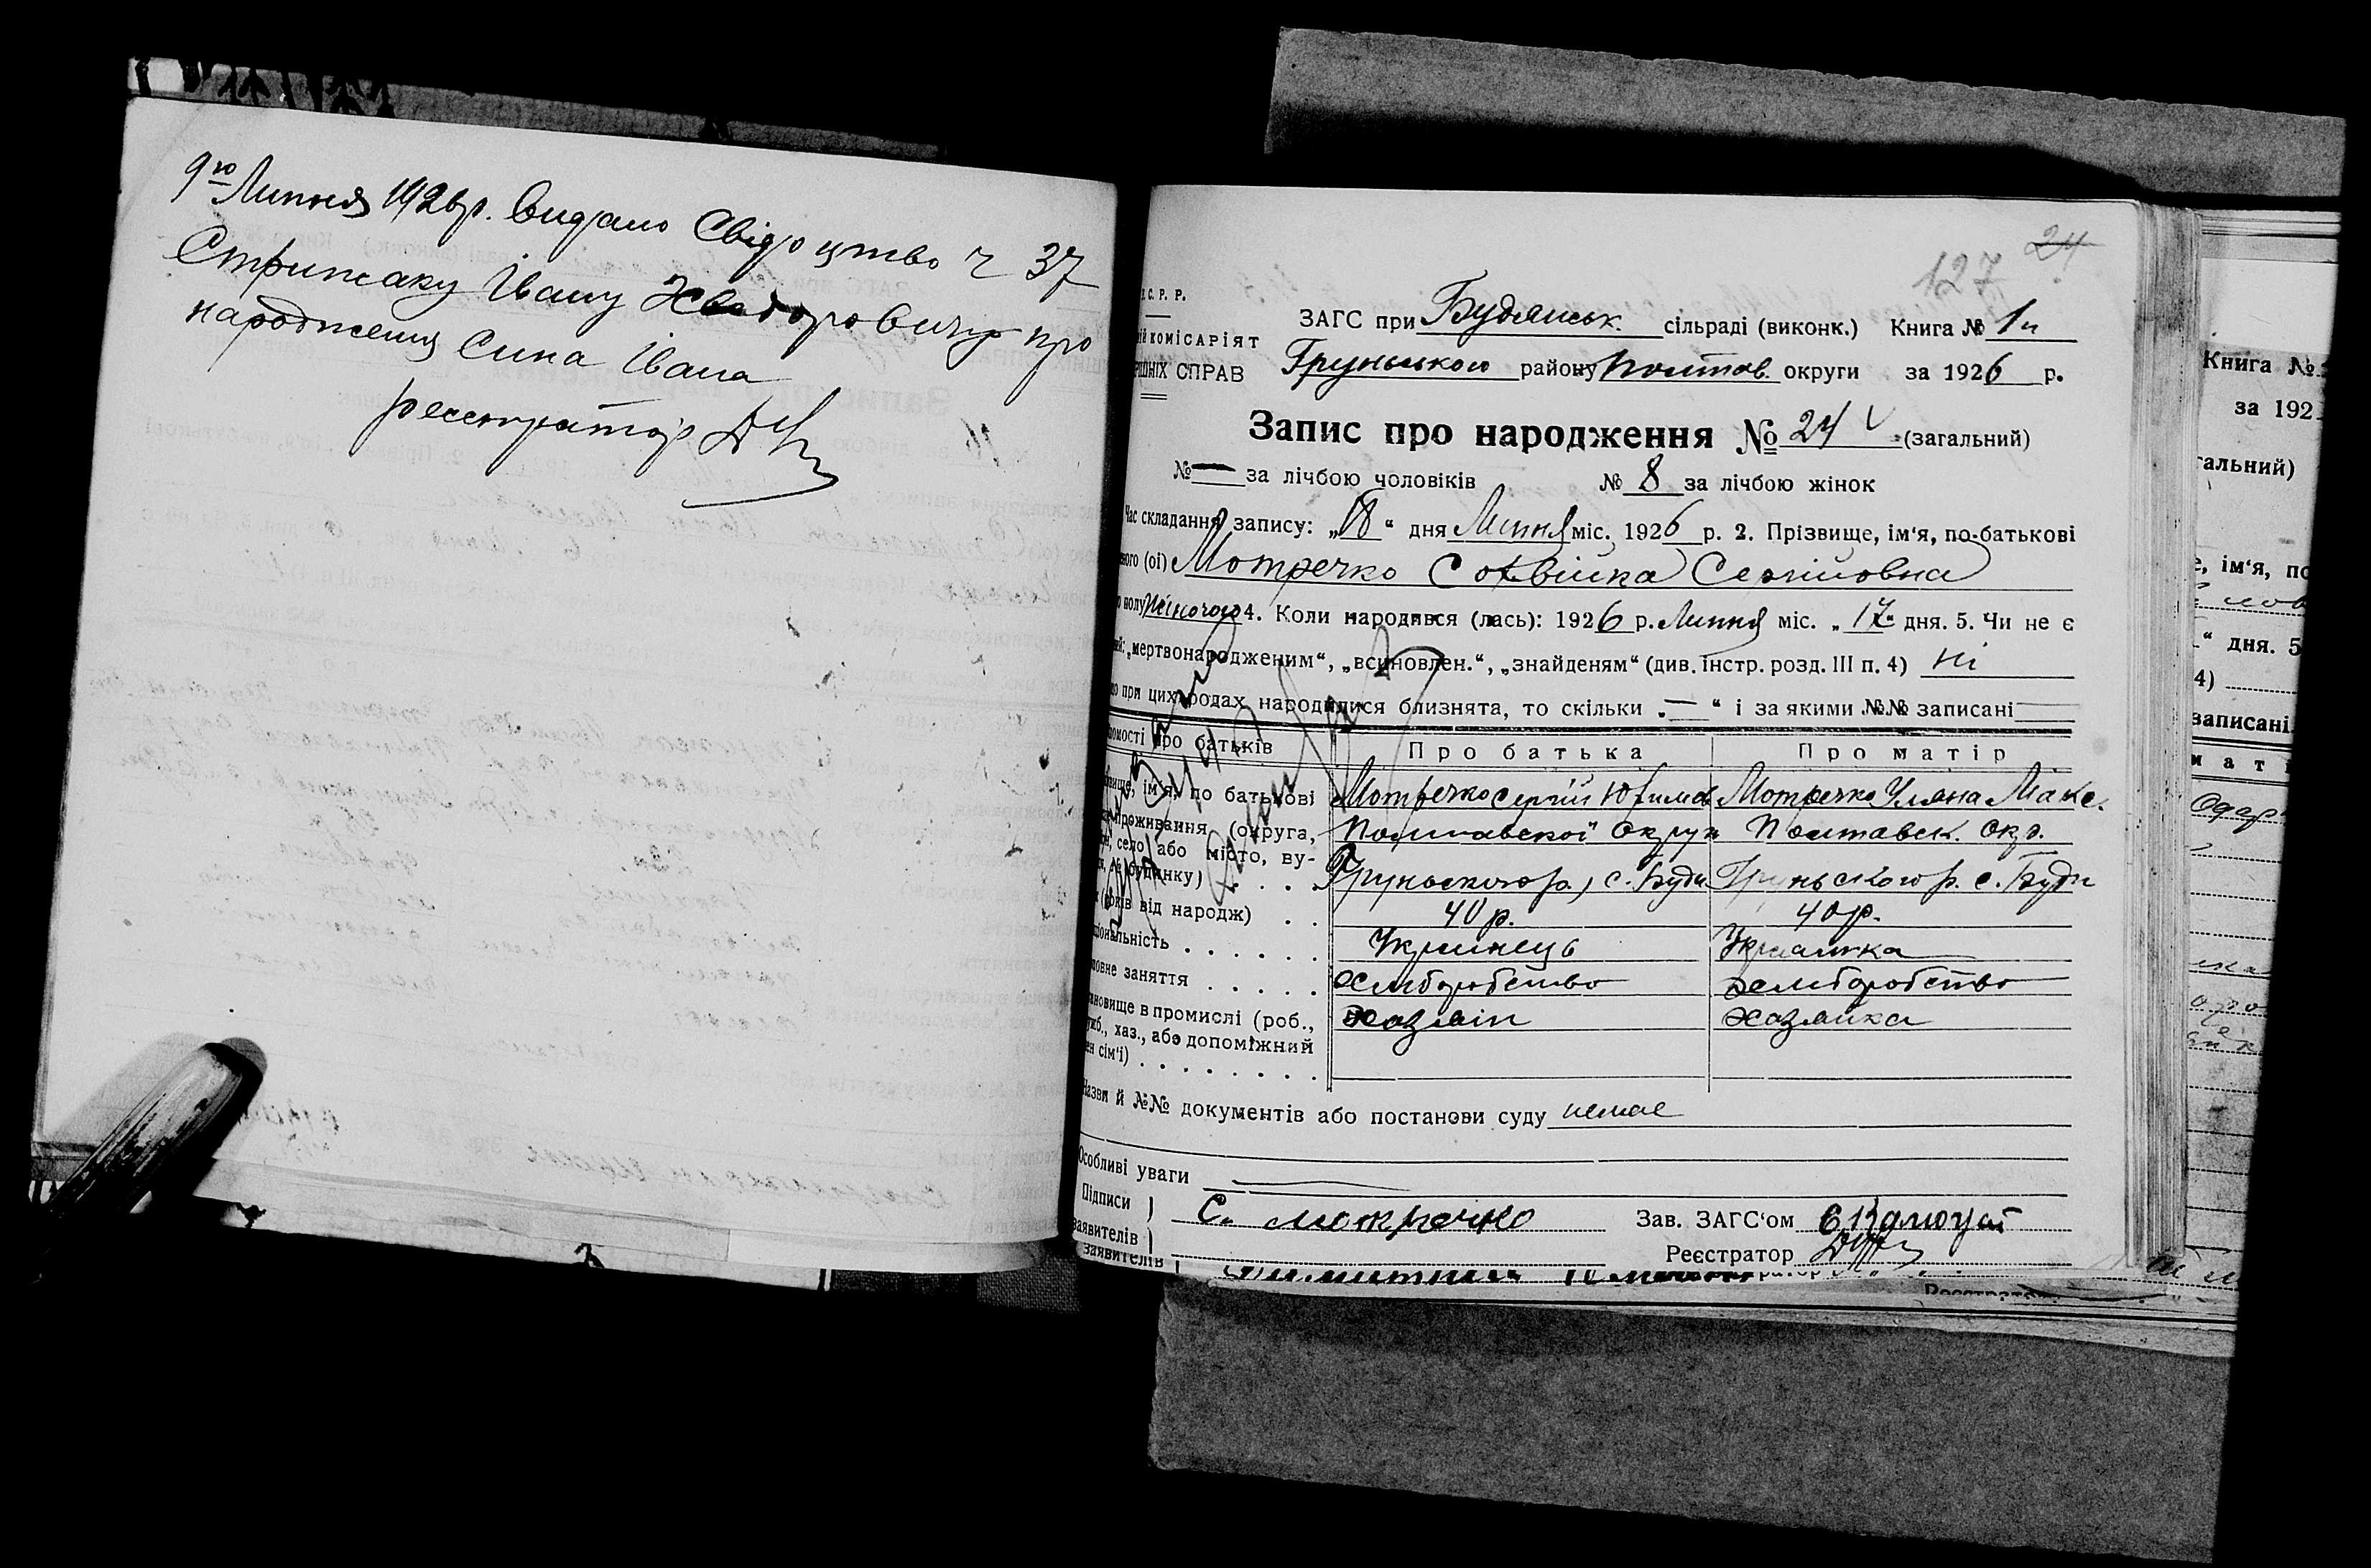 9го Липня 1926р. Видано Свідоцтво ч 37
Стрижаку Івану Хведоровичу про
народження Сина Івана
реєстратор
127 24
С. Р. Р.
КОМІСАРІЯТ
СПРАВ
ЗАГС при Будянськ. сільраді (виконк.) Книга № 1н
Груньського району Полтав. округи за 1926 р.
Запис про народження № 24 (загальний)
№ — за лічбою чоловіків № 8 за лічбою жінок
Час складання запису: „18“ дня Липня міс. 1926 р. 2. Прізвище, ім'я, по-батькові
ного (ої) Мотречко Сергіїовна
полу жіночого 4. Коли народився (лась): 1926 р. Липня міс. „17“ дня. 5. Чи не є
„мертвонародженим“, „всиновлен.“, „знайденям“ (див. інстр. розд. III п. 4) ні
при цих родах народилися близнята, то скільки „—“ і за якими №№ записані
домості про батьків Про батька Про матір
ім'я, по батькові Мотречко Сергій Юхимов Мотречко Уляна Макс.
проживання (округа, Полтавської Округи Полтавськ. Окр.
село або місто, ву-
№ будинку) . . . Груньського р., с. Буди Груньського р. с. Буди
(років від народж) . . 40 р. 40 р.
ціональність . . . . . . Украинець Украинка
ловне заняття . . . . . Хлиборобство Хлиборобство
ановище в промислі (роб., хазяін хазяика
служб., хаз., або допоміжний
член сім'ї) . . . . . . . .
Назви й №№ документів або постанови суду немає
Особливі уваги
Підписи С. мотречко Зав. ЗАГС'ом
заявителів Реєстратор
заявителів
Книга №
за 192
гальний)
ім'я, по
“ дня. 5
4)
записані
мат
Одар
Реєстратор